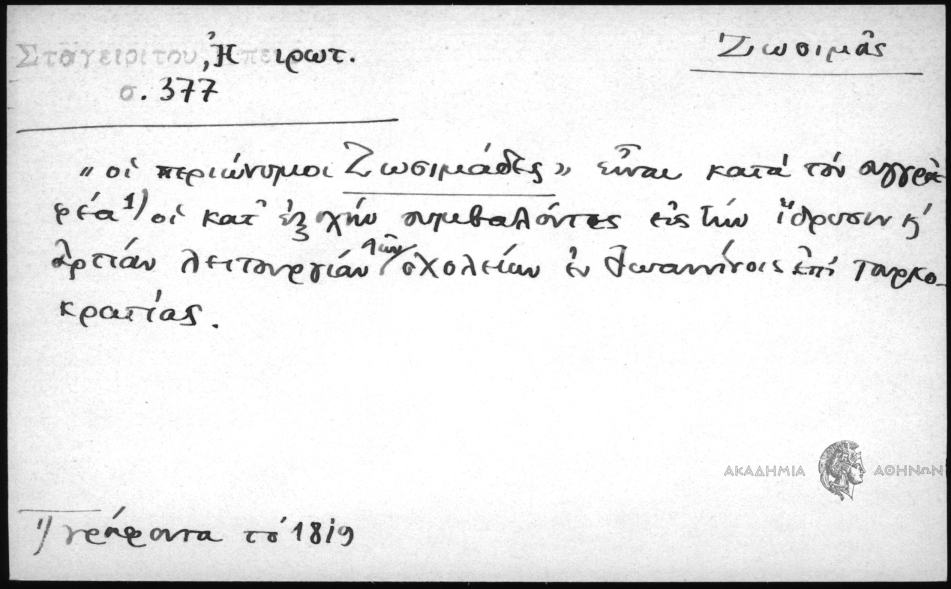 Σταγειρίτου, Ἠπειρωτ.
σ. 377
Ζωσιμᾶς
"οἱ περιώνυμοι Ζωσιμάδες" εἶναι κατά τόν συγγρα-
φέα ¹) οἱ κατ' ἐξοχήν συμβαλόντες εἰς τήν ἵδρυσιν κ'
ἀρτίαν λειτουργίαν τῶν σχολείων ἐν Ἰωαννίνοις ἐπί Τουρκο-
κρατίας.
ΑΚΑΔΗΜΙΑ ΑΘΗΝΩΝ
¹) γράφοντα τό 1819